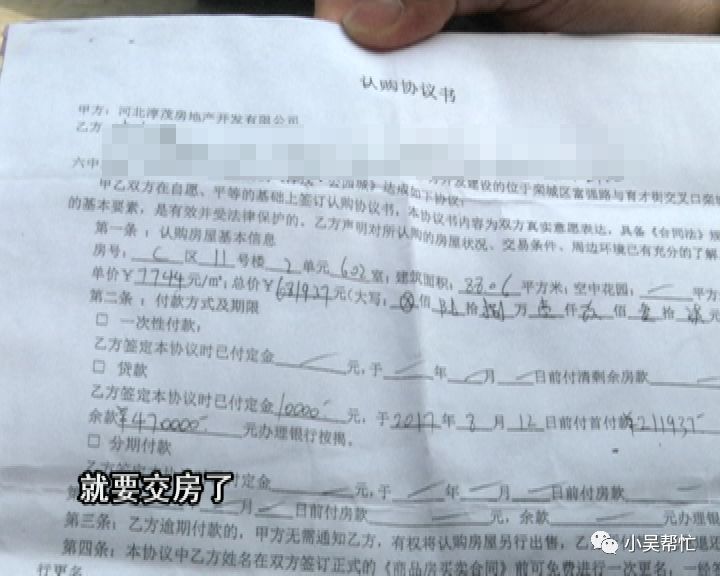 认购协议书
甲方：河北淳茂房地产开发有限公司
乙方
六中
公园城》达成如下协议：开发建设的位于栾城区富强路与育才街交叉口栾城
甲乙双方在自愿、平等的基础上签订认购协议书，本协议书内容为双方真实意愿表达，具备《合同法》规
的基本要素，是有效并受法律保护的。乙方声明对所认购的房屋状况、交易条件、周边环境已有充分的了解
第一条：认购房屋基本信息
房号：C区11号楼2单元602室；建筑面积：88.06平方米；空中花园：平方
单价￥7744元/㎡；总价￥681937元（大写：佰陆拾捌万壹仟玖佰叁拾柒元
第二条：付款方式及期限
□ 一次性付款：
乙方签定本协议时已付定金元，于年月日前付清剩余房款
□ 贷款
乙方签定本协议时已付定金10000元，于2017年8月12日前付首付款￥211937
余款￥470000元办理银行按揭。
□ 分期付款
付定金元，于年月日前付房款
月日前付房款元，余款元办理银
第三条：乙方逾期付款的，甲方无需通知乙方，有权将认购房屋另行出售，乙
第四条：本协议中乙方姓名在双方签订正式的《商品房买卖合同》前可免费进行一次更名，一经签
行更名
就要交房了
小吴帮忙